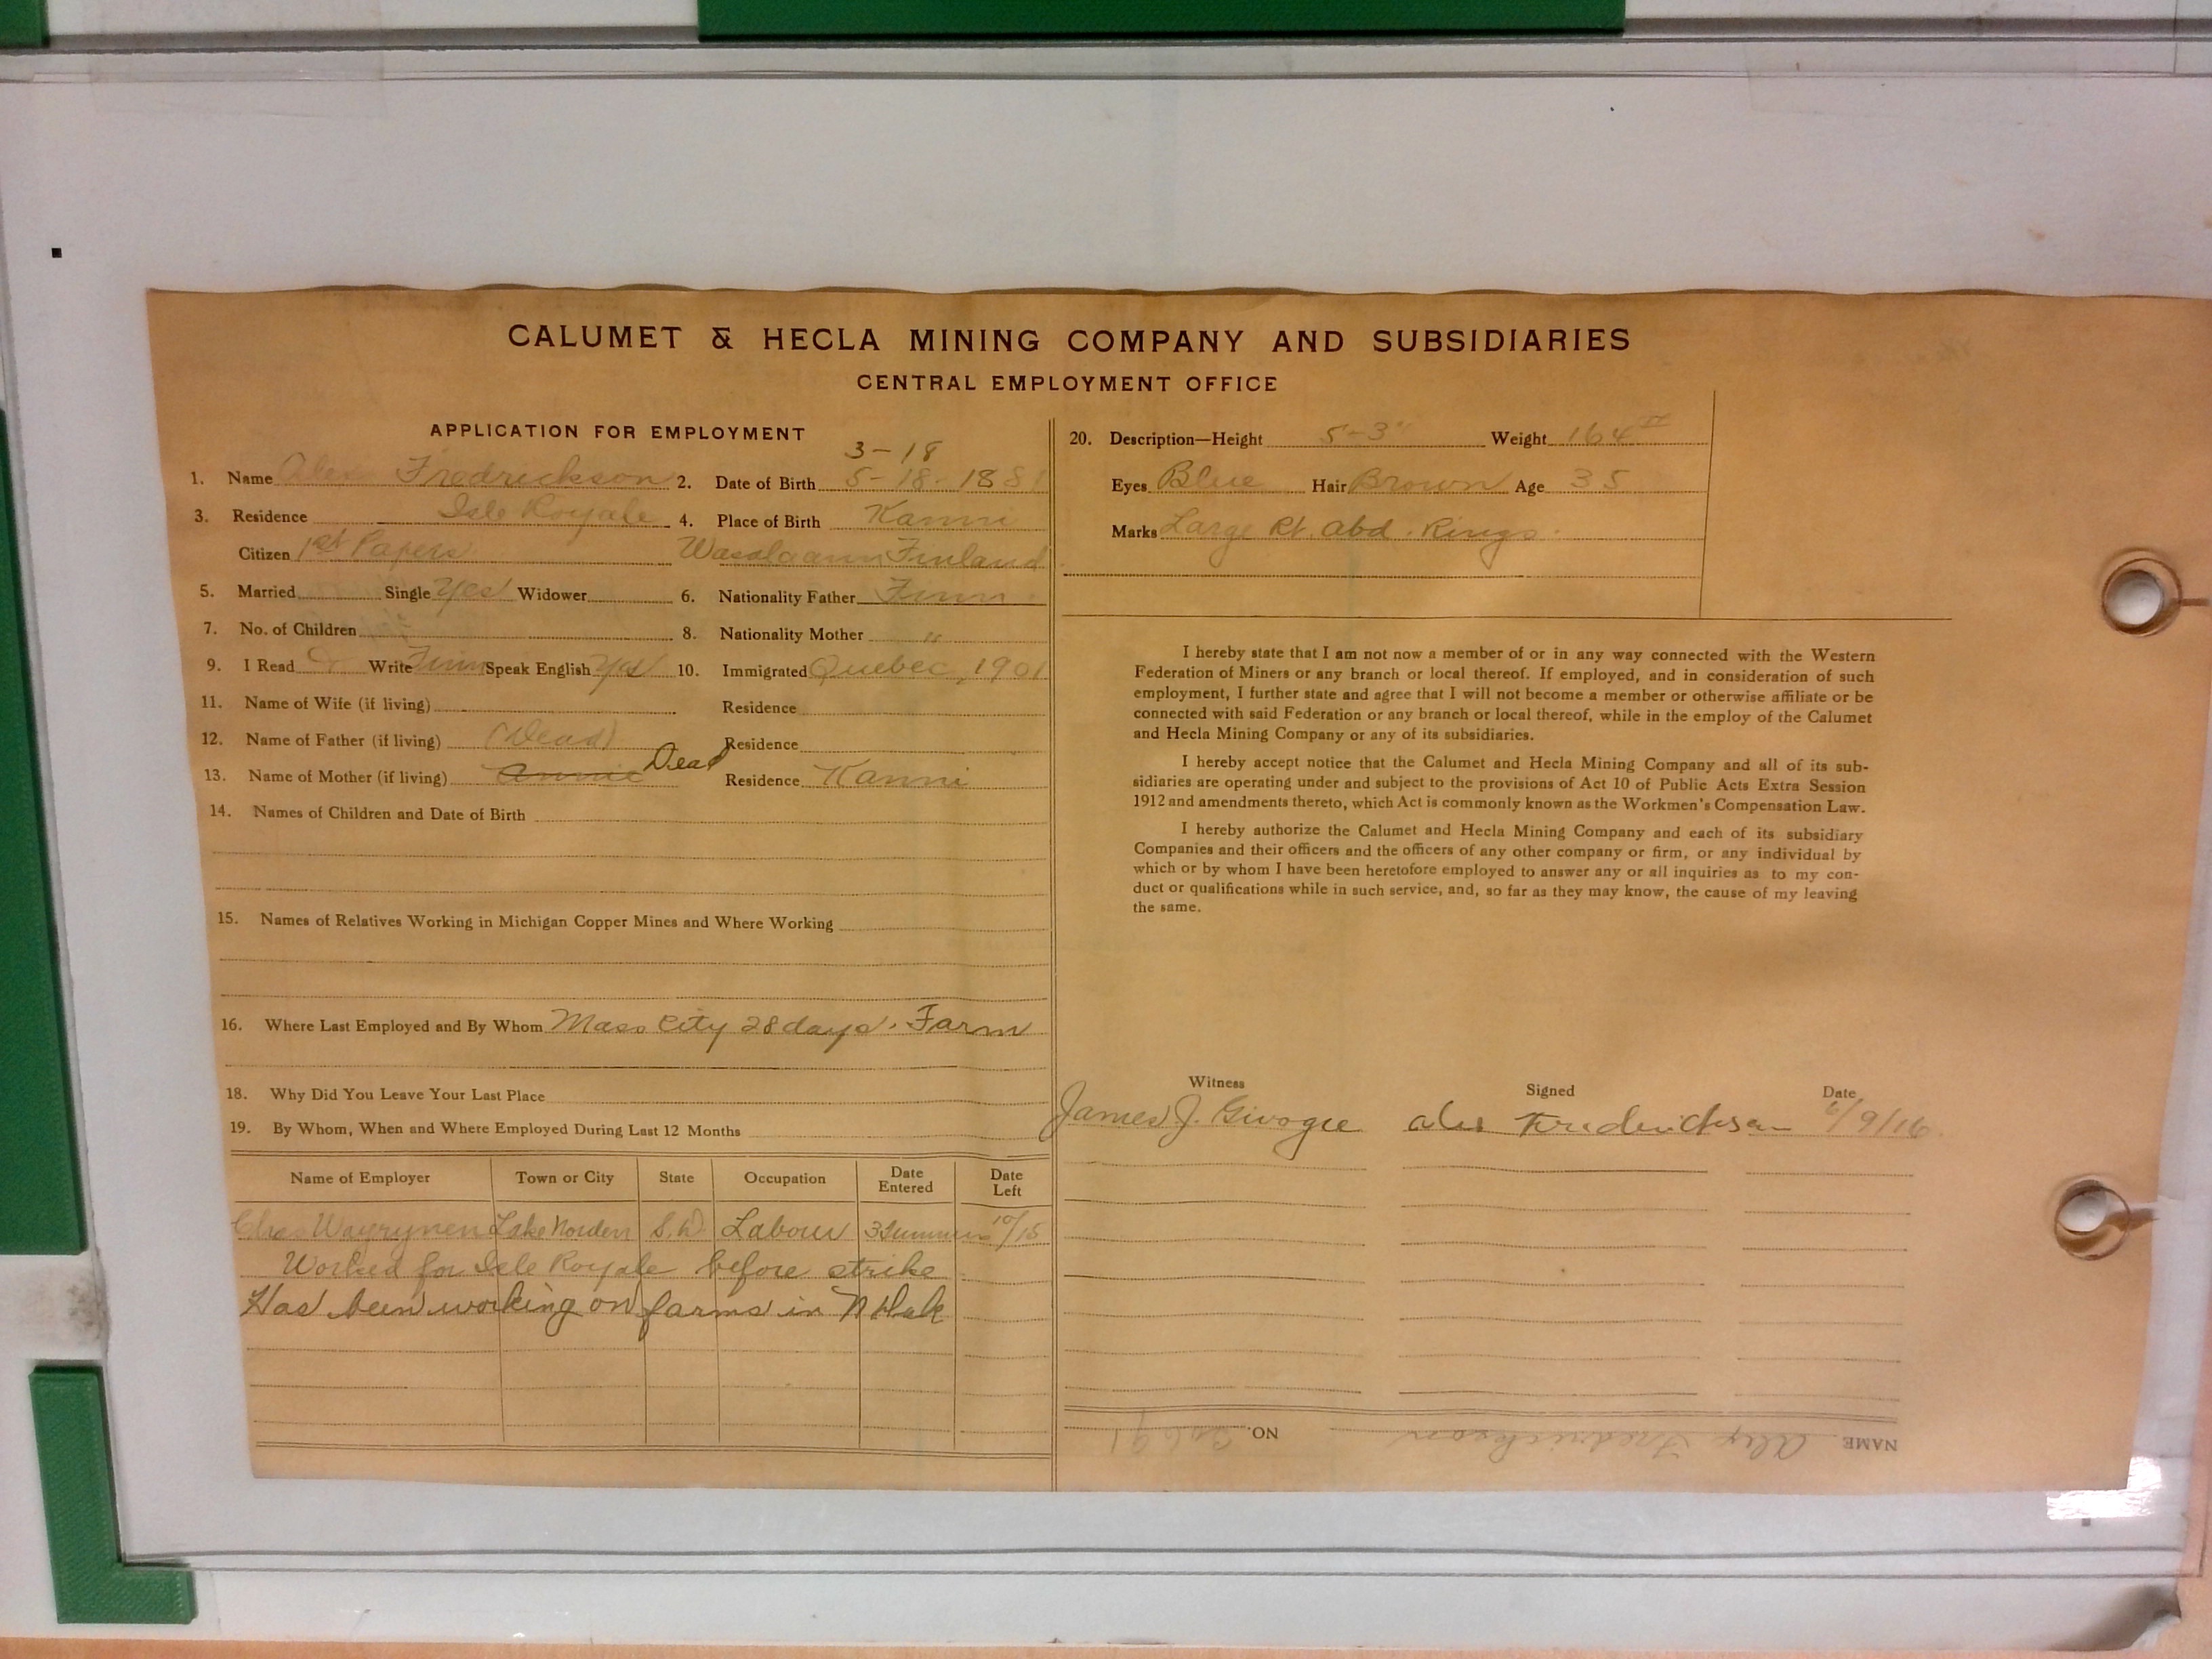 CALUMET & HECLA MINING COMPANY AND SUBSIDIARIES
CENTRAL EMPLOYMENT OFFICE
APPLICATION FOR EMPLOYMENT
3-18
1. Name Alex Fredrickson 2. Date of Birth 5-18-1881
3. Residence Isle Royale 4. Place of Birth Kanni
Citizen 1st Papers Finland
5. Married Single Yes Widower 6. Nationality Father Finn
7. No. of Children 8. Nationality Mother "
9. I Read Write Finn Speak English Yes 10. Immigrated Quebec, 1901
11. Name of Wife (if living) Residence
12. Name of Father (if living) (Dead) Residence
13. Name of Mother (if living) Annie Dead Residence Kanni
14. Names of Children and Date of Birth
15. Names of Relatives Working in Michigan Copper Mines and Where Working
16. Where Last Employed and By Whom Mass City 28 days. Farm
18. Why Did You Leave Your Last Place
19. By Whom, When and Where Employed During Last 12 Months
Name of Employer Town or City State Occupation Date Entered Date Left
Chas Wayrynen Lake Norden S.D Labour 3 Summers 10/15
Worked for Isle Royale before strike
Has been working on farms in N Dak
20. Description—Height 5-3" Weight 164 #
Eyes Blue Hair Brown Age 35
Marks Large Rt. abd. Rings.
I hereby state that I am not now a member of or in any way connected with the Western
Federation of Miners or any branch or local thereof. If employed, and in consideration of such
employment, I further state and agree that I will not become a member or otherwise affiliate or be
connected with said Federation or any branch or local thereof, while in the employ of the Calumet
and Hecla Mining Company or any of its subsidiaries.
I hereby accept notice that the Calumet and Hecla Mining Company and all of its sub-
sidiaries are operating under and subject to the provisions of Act 10 of Public Acts Extra Session
1912 and amendments thereto, which Act is commonly known as the Workmen's Compensation Law.
I hereby authorize the Calumet and Hecla Mining Company and each of its subsidiary
Companies and their officers and the officers of any other company or firm, or any individual by
which or by whom I have been heretofore employed to answer any or all inquiries as to my con-
duct or qualifications while in such service, and, so far as they may know, the cause of my leaving
the same.
Witness Signed Date
James J. Givogee Alex Fredrickson 6/9/16
NAME Alex Fredrickson NO.